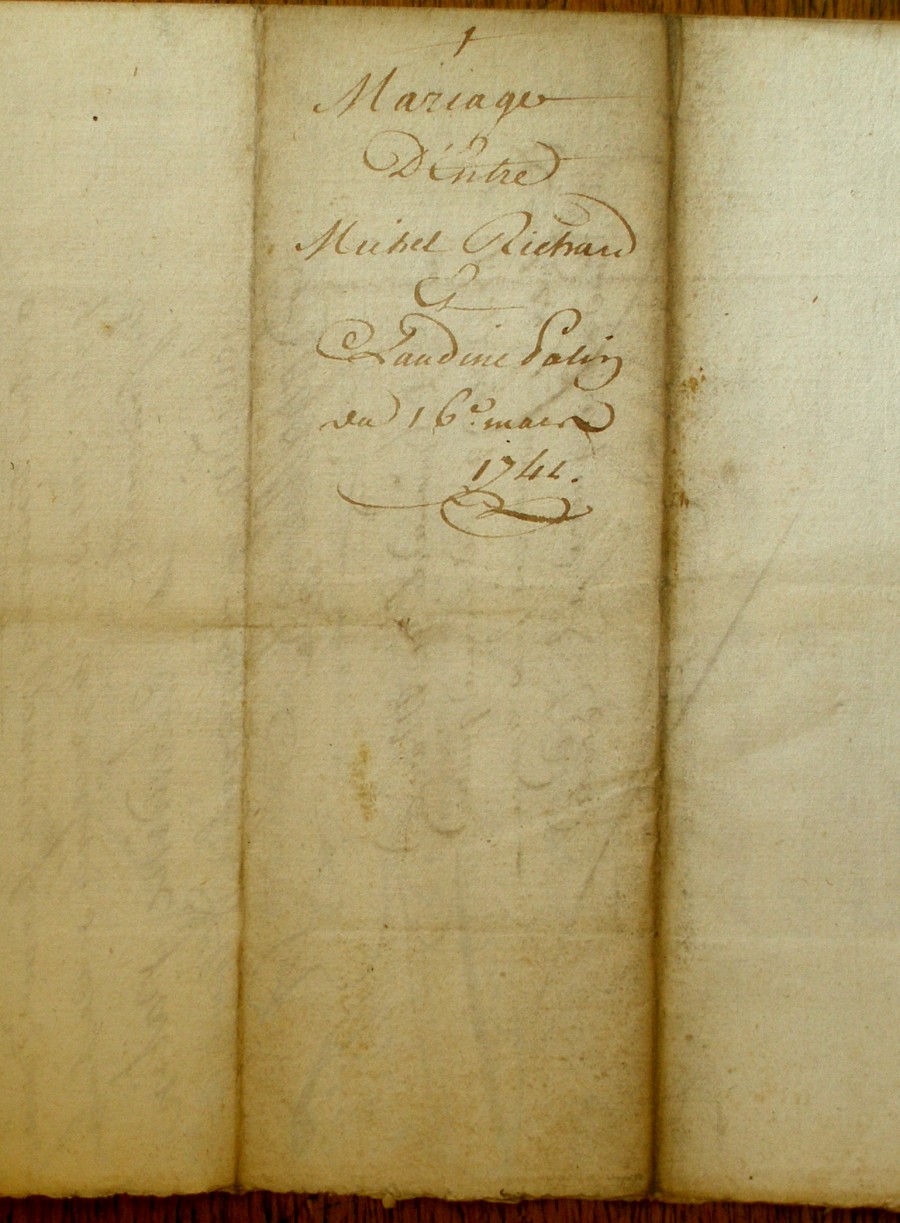 1
Mariage
D'Entre
Michel Richard
Et
Claudine
du 16e. mars
174